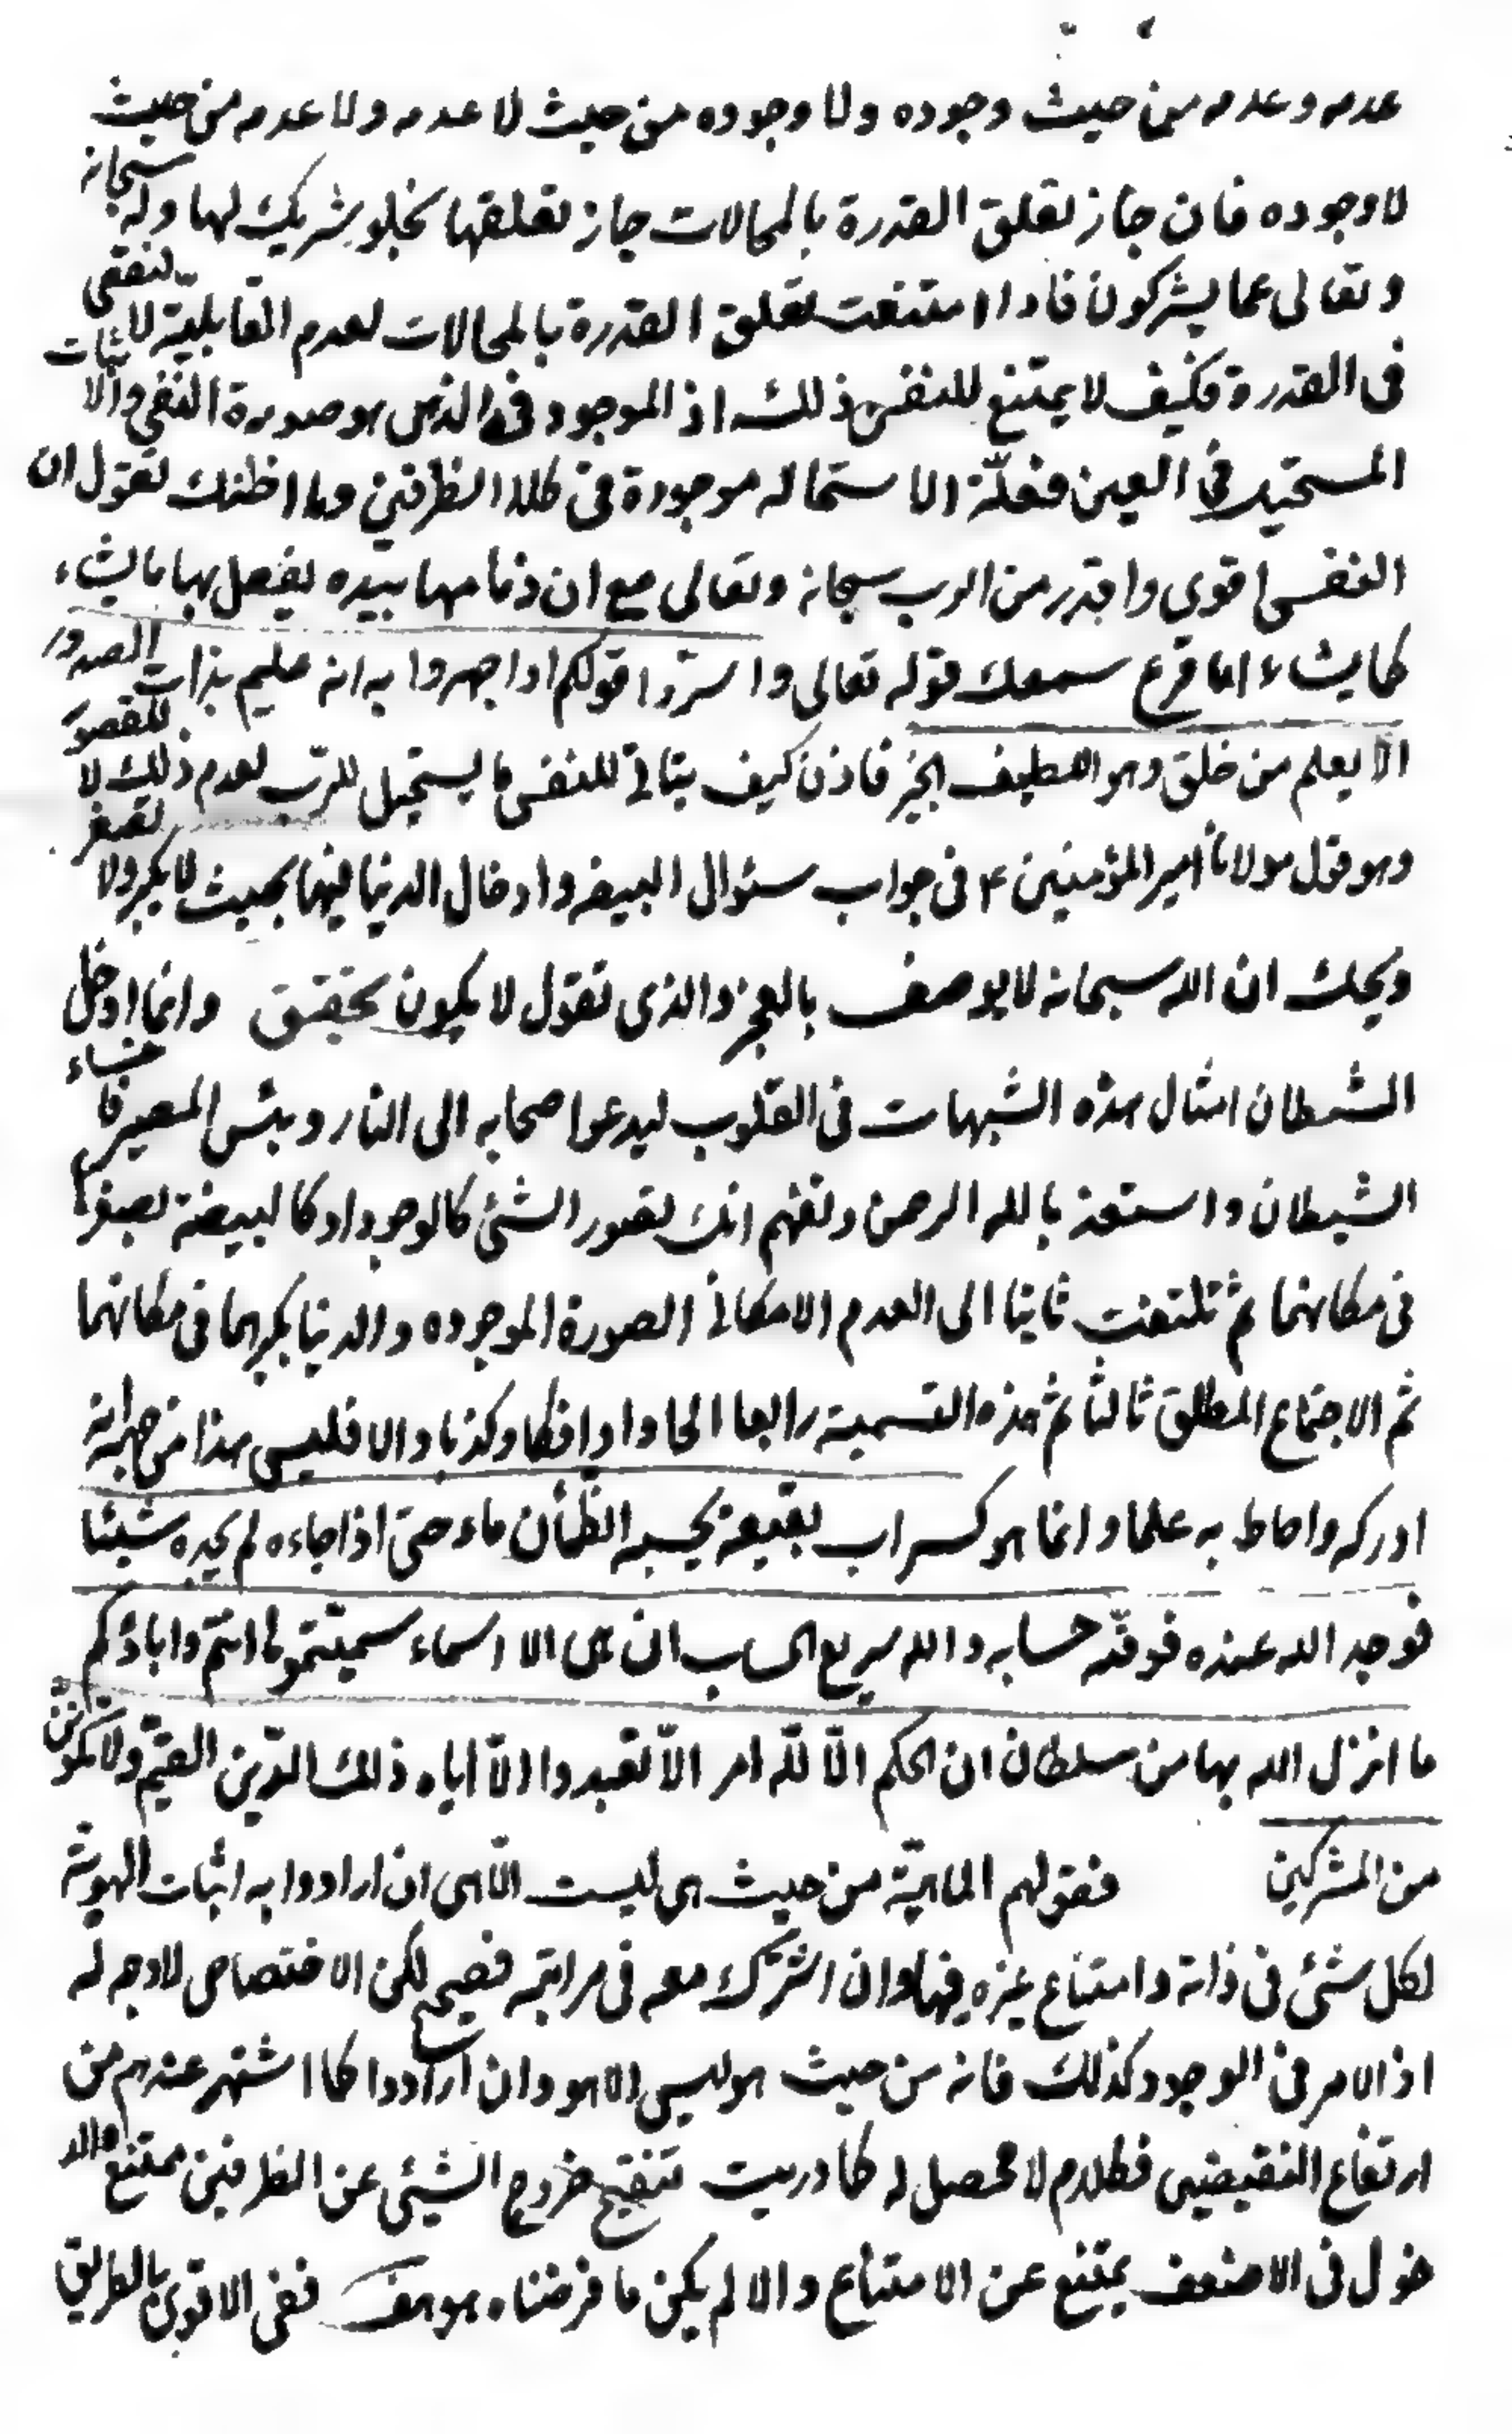 عدمه وعدمه من حيث وجوده ولا وجوده من حيث لا عدمه ولا عدمه من حيث
لا وجوده فان جاز تعلق القدرة بالمحالات جاز تعلقها بخلو شريك لها وله سبحانه
وتعالى عما يشركون فاذا امتنعت تعلق القدرة بالمحالات لعدم القابلية لا لنقص
فى القدرة فكيف لا يمتنع للنفس ذلك اذ الموجود فى الذهن هو صورة النفى والاثبات
المستحيل فى العين فعلّة الاستحاله موجودة فى كلا الظرفين وما اظنك تقول ان
النفس اقوى واقدر من الرب سبحانه وتعالى مع ان زمامها بيده يفعل بها ما يشاء
كما يشاء اما قرع سمعك قوله تعالى واسرّوا قولكم او اجهروا به انه عليم بذات الصدور
الا يعلم من خلق وهو اللطيف الخبير فاذن كيف يتاتى للنفس ما يستحيل للرّب لعدم ذلك لا للقصور
وهو قول مولانا امير المؤمنين ع فى جواب سئوال البيضه وادخال الدنيا فيها بحيث لا يكبر ولا تصغر
ويحك ان الله سبحانه لا يوصف بالعجز والذى تقول لا يكون تحقيق وانما ادخل
الشيطان امثال هذه الشبهات فى القلوب ليدعوا صحابه الى النار وبئس المصير فاخساء
الشيطان واستعذ بالله الرحمن وتفهم انك تصور الشئ كالوجود او كالبيضة بصغرها
فى مكانهما ثم تلتفت ثانيا الى العدم الامكانى الصورة الموجوده والدنيا بكبرها فى مكانهما
ثم الاجتماع المطلق ثالثا ثم هذه التسمية رابعا الحادا وافكا وكذبا والا فليس هذا من جهة انه
ادركه واحاط به علما وانما هو كسراب بقيعة يحسبه الظمأن ماء حتى اذا جاءه لم يجده شيئا
فوجد الله عنده فوفّه حسابه والله سريع الحساب ان هى الا اسماء سميتموها انتم واباؤكم
ما انزل الله بها من سلطان ان الحكم الّا للّه امر الّا تعبدوا الّا اياه ذلك الدّين القيّم ولا تكوننّ
من المشركين فقولهم الماهيّة من حيث هى ليست الّا هى ان ارادوا به اثبات الهويّة
لكل شئ فى ذاته وامتناع غيره فيها وان اشترك معه فى مراتبه فصحيح لكن الاختصاص لا وجه له
اذ الامر فى الوجود كذلك فانه من حيث هو ليس الا هو وان ارادوا كما اشتهر عندهم من
ارتفاع النقيضين فكلام لا محصل له كما دريت تنقيح خروج الشيئ عن الظرفين ممتنع والد
خول فى الاضعف يمتنع عن الامتناع والا لم يكن ما فرضناه هو هف ففى الاقوى بالطريق